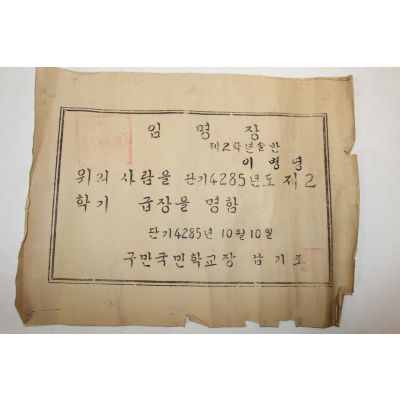 임명장
제2학년솔반
이병영
위의 사람을 단기4285년도 제2
학기 급장을 명함
단기4285년 10월10일
구만국민학교장 남기조